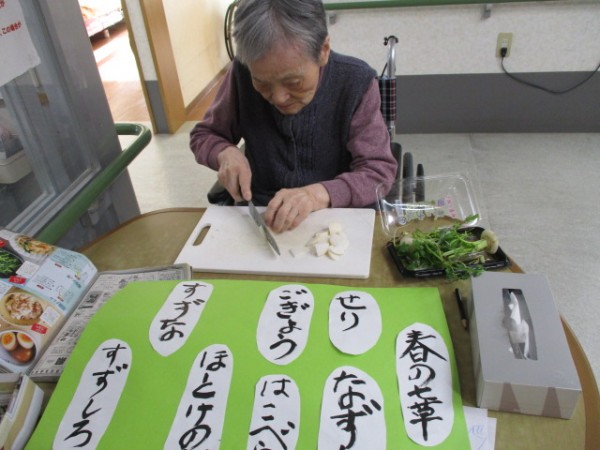 春の七草
せり
なず
ごぎょう
はこべ
ほとけの
すずな
すずしろ